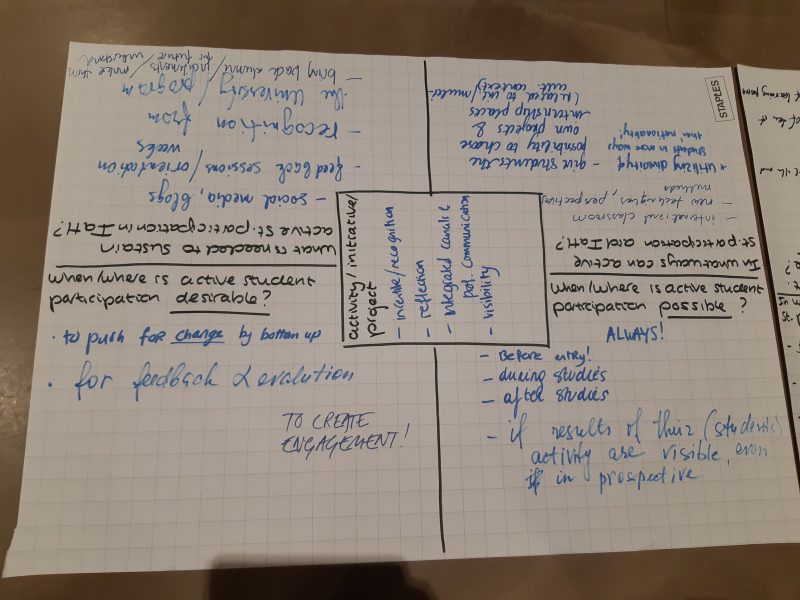 What is needed to sustain
active St. participation in IatH?
- social media, blogs
feed back sessions / orientation
weeks
- recognition from
the University / program
- bring back alumni / make them
for future
In what ways can active
St. participation and IatH?
- international classroom
- new techniques, perspectives
methods
+ utilizing diversity of
students in more ways
than nationality!
- give students the
possibility to choose
own projects &
internship places
(related to int/multi-
cult context)
STAPLES
activity/initiative/
project
- incentive/recognition
- reflection
- integrated canals &
prof. communication
- visibility
When/where is active student
participation desirable?
• to push for change by bottom up
• for feedback & evalution
TO CREATE
ENGAGEMENT!
When/where is active student
participation possible?
ALWAYS!
- Before entry!
- during studies
- after studies
- if results of their (students)
activity are visible, even
if in prospective